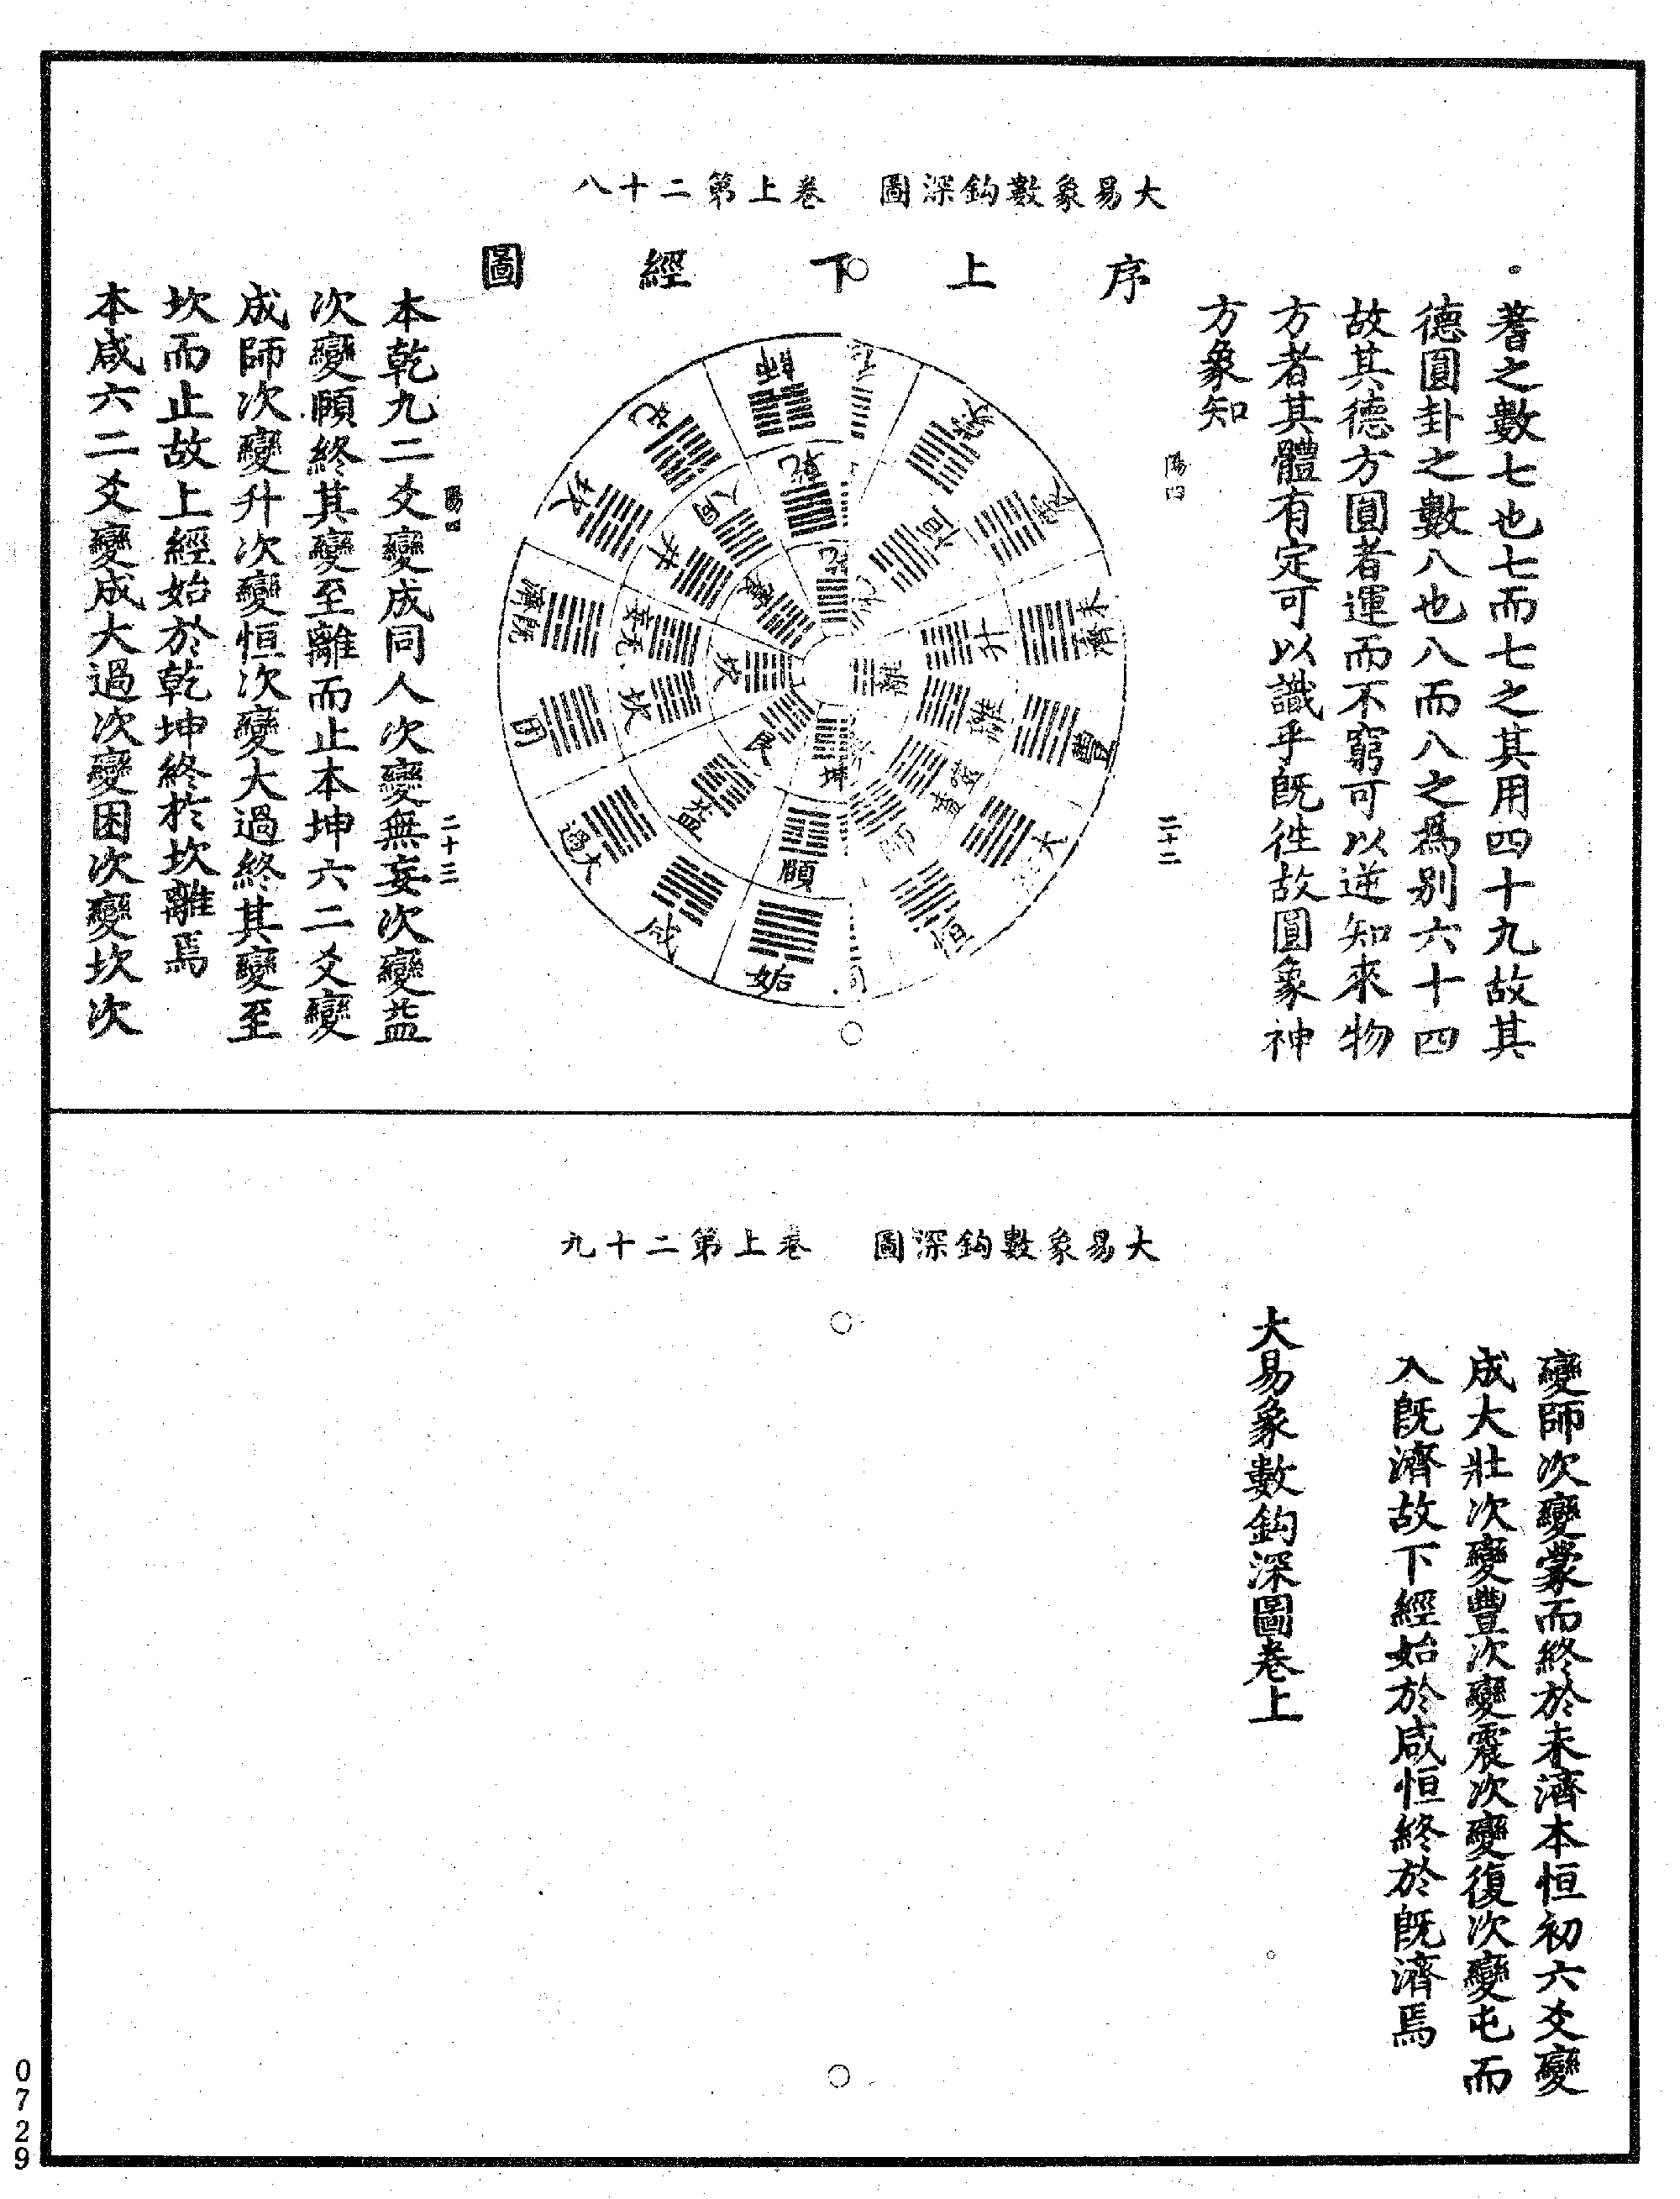 大易象數鈎深圖　卷上第二十八
蓍之數七也七而七之其用四十九故其
德圓卦之數八也八而八之爲别六十四
故其德方圓者運而不窮可以逆知來物
方者其體有定可以識乎旣徃故圓象神
方象知
陽四
二十二
序上下經圖
家人
未濟
豐
大
恒
升
姤
咸
大過
頤
益
坤
艮
坎
困
旣濟
坎
井
同人
乾
陽四
二十三
本乾九二爻變成同人次變無妄次變益
次變頤終其變至離而止本坤六二爻變
成師次變升次變恒次變大過終其變至
坎而止故上經始於乾坤終於坎離焉
本咸六二爻變成大過次變困次變坎次
大易象數鈎深圖　卷上第二十九
變師次變蒙而終於未濟本恒初六爻變
成大壯次變豐次變震次變復次變屯而
入旣濟故下經始於咸恒終於旣濟焉
大易象數鈎深圖卷上
0729